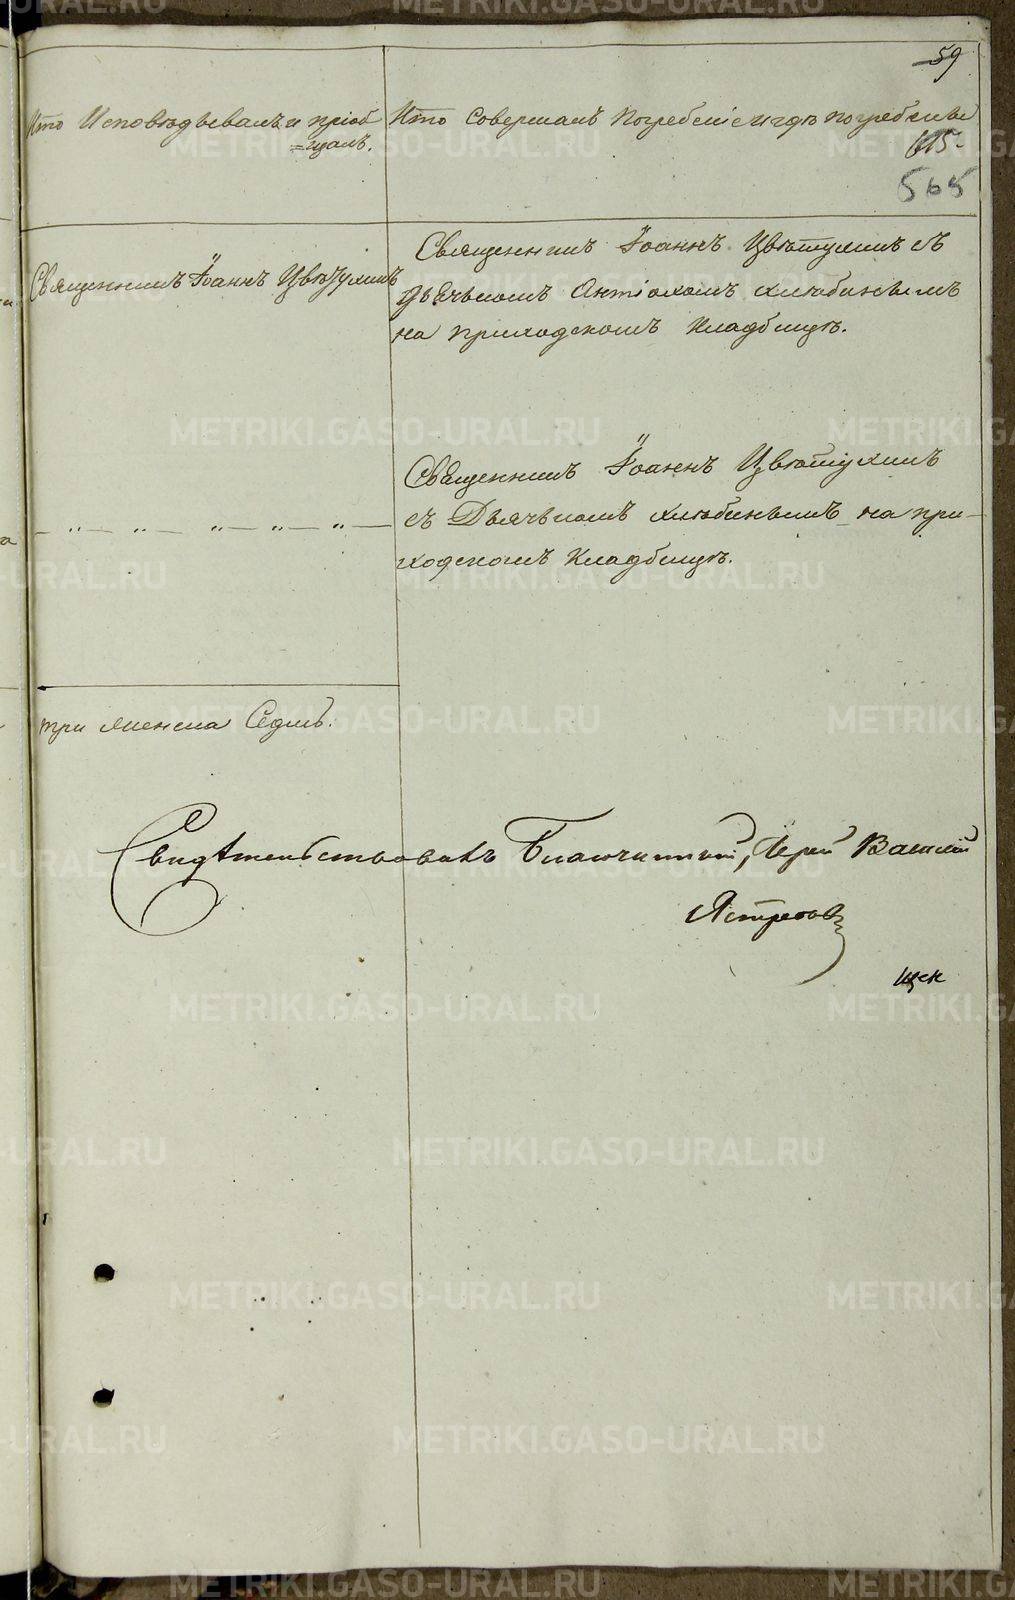 59
Кто Исповѣдывалъ и пріоб
=щалъ.
Кто Совершалъ Погребеніе и гдѣ погребены
615.
565
Священникъ Іоаннъ Цвѣтухинъ
Священникъ Іоаннъ Цвѣтухинъ съ
дьячькомъ Антіохомъ Хлѣбинымъ
на приходскомъ Кладбищѣ.
Священникъ Іоаннъ Цвѣтухинъ
съ Дьячькомъ Хлѣбинымъ на при-
ходскомъ Кладбищѣ.
три женска Седмь.
Свидѣтельствовалъ Благочинный, Іерей Василій
Ястребовъ